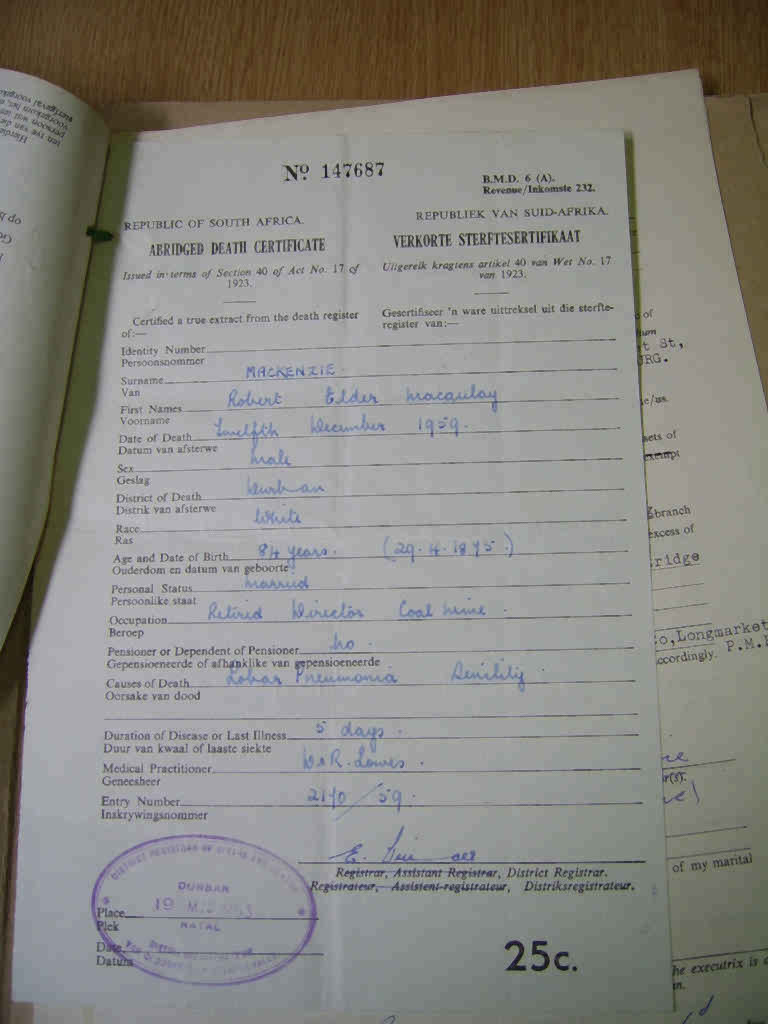 Nº 147687
B.M.D. 6 (A).
Revenue/Inkomste 232.
REPUBLIC OF SOUTH AFRICA.
ABRIDGED DEATH CERTIFICATE
Issued in terms of Section 40 of Act No. 17 of
1923.
Certified a true extract from the death register
of:—
REPUBLIEK VAN SUID-AFRIKA.
VERKORTE STERFTESERTIFIKAAT
Uitgereik kragtens artikel 40 van Wet No. 17
van 1923.
Gesertifiseer 'n ware uittreksel uit die sterfte-
register van:—
Identity Number
Persoonsnommer
Surname MACKENZIE.
Van
First Names Robert Elder Macaulay
Voorname
Date of Death Twelfth December 1959.
Datum van afsterwe
Sex Male
Geslag
District of Death Durban
Distrik van afsterwe
Race White
Ras
Age and Date of Birth 84 years. (29.4.1875.)
Ouderdom en datum van geboorte
Personal Status Married
Persoonlike staat
Occupation Retired Director Coal Mine.
Beroep
Pensioner or Dependent of Pensioner No.
Gepensioeneerde of afhanklike van gepensioeneerde
Causes of Death Lobar Pneumonia Senility.
Oorsake van dood
Duration of Disease or Last Illness 5 days.
Duur van kwaal of laaste siekte
Medical Practitioner Lowes.
Geneesheer
Entry Number 2170/59.
Inskrywingsnommer
Registrar, Assistant Registrar, District Registrar.
Registrateur, Assistent-registrateur, Distriksregistrateur.
DURBAN
19
NATAL
Place
Plek
Date
Datum
25c.
of
t St,
URG.
sets of
exempt
branch
xcess of
ridge
o, Longmarket
ccordingly. P.M.
of my marital
he executrix is